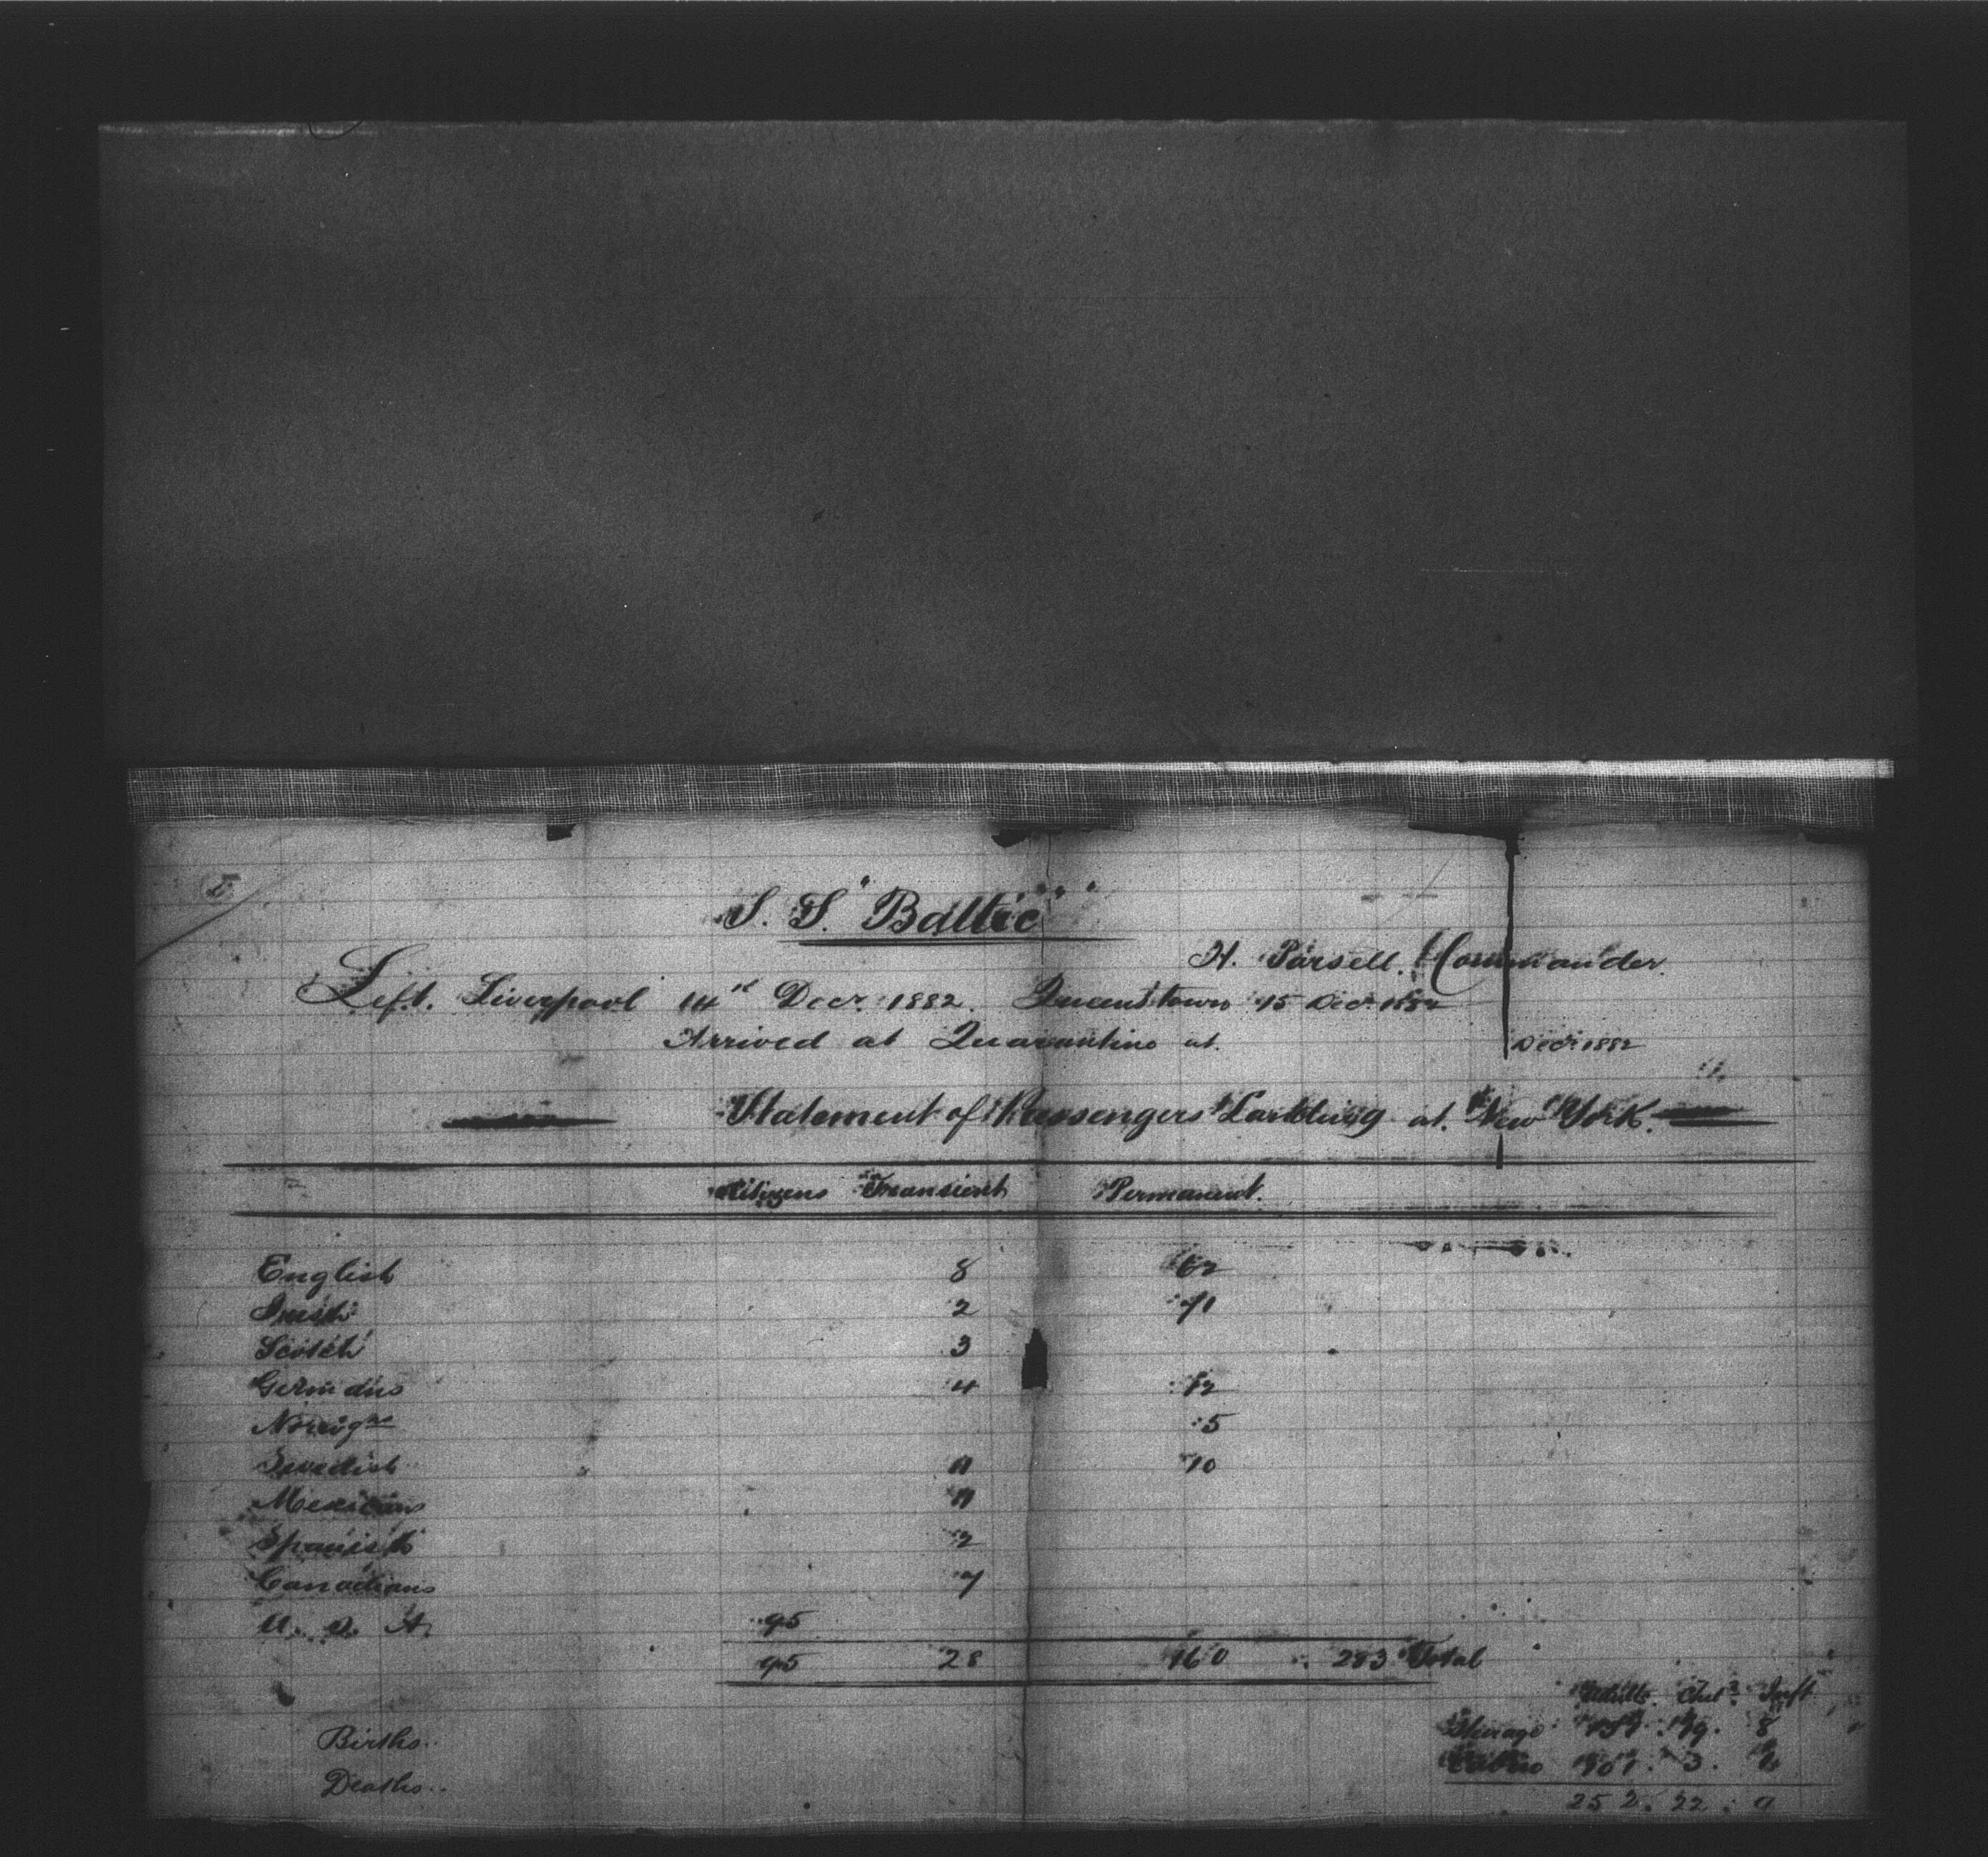 S. S. "Baltic"
H. Parsell. Commander.
Left. Liverpool 14th Decr. 1882. Queenstown 15 Decr 1882
Arrived at Quarantine at. Decr 1882
Statement of Passengers Landing at. New York.
Citizens Transient Permanent.
English 8 62
Irish 2 71
Scotch 3
Germans 4 12
Norwgns 5
Swedish 1 10
Mexicans 1
Spanish 2
Canadians 7
U. S. A. 95
95 28 160 283 Total
Adults. Chd. Inft
Steerage 151. 19. 8
Births..
Cabin 101. 3. 1
Deaths..
252. 22. 9